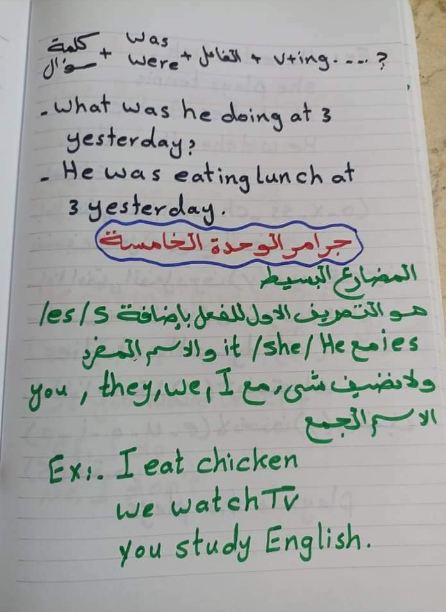 كلمة سؤال + was were + الفاعل + v+ing....?
- What was he doing at 3
yesterday?
- He was eating lunch at
3 yesterday.
جرامر الوحدة الخامسة
المضارع البسيط
هو التصريف الاول للفعل بإضافة es/s/
ies مع it /she/ He والاسم المفرد
ولانضيف شىء مع you, they, we, I
الاسم الجمع
Ex:. I eat chicken
we watch TV
you study English.